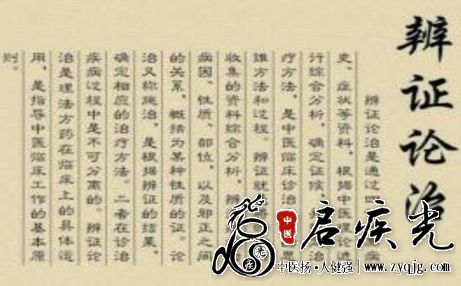 辨证论治
辨证论治是通过病
史、症状等资料，根据中医论进
行综合分析，确定证候，
疗方法，是中医临床诊治思
维方法和过程。辨证就
收集的资料综合分析，辨
病因、性质、部位，以及邪正之间
的关系，概结为某种性质的证。论
治又称施治，是根据辨证的结果，
确定相应的治疗方法。二者在诊治
疾病过程中是不可分离的。辨证论
治是理法方药在临床上的具体运
用，是指导中医临床工作的基本原
则。
中医
启疾光
中医扬·人健强
www.zyqjg.com